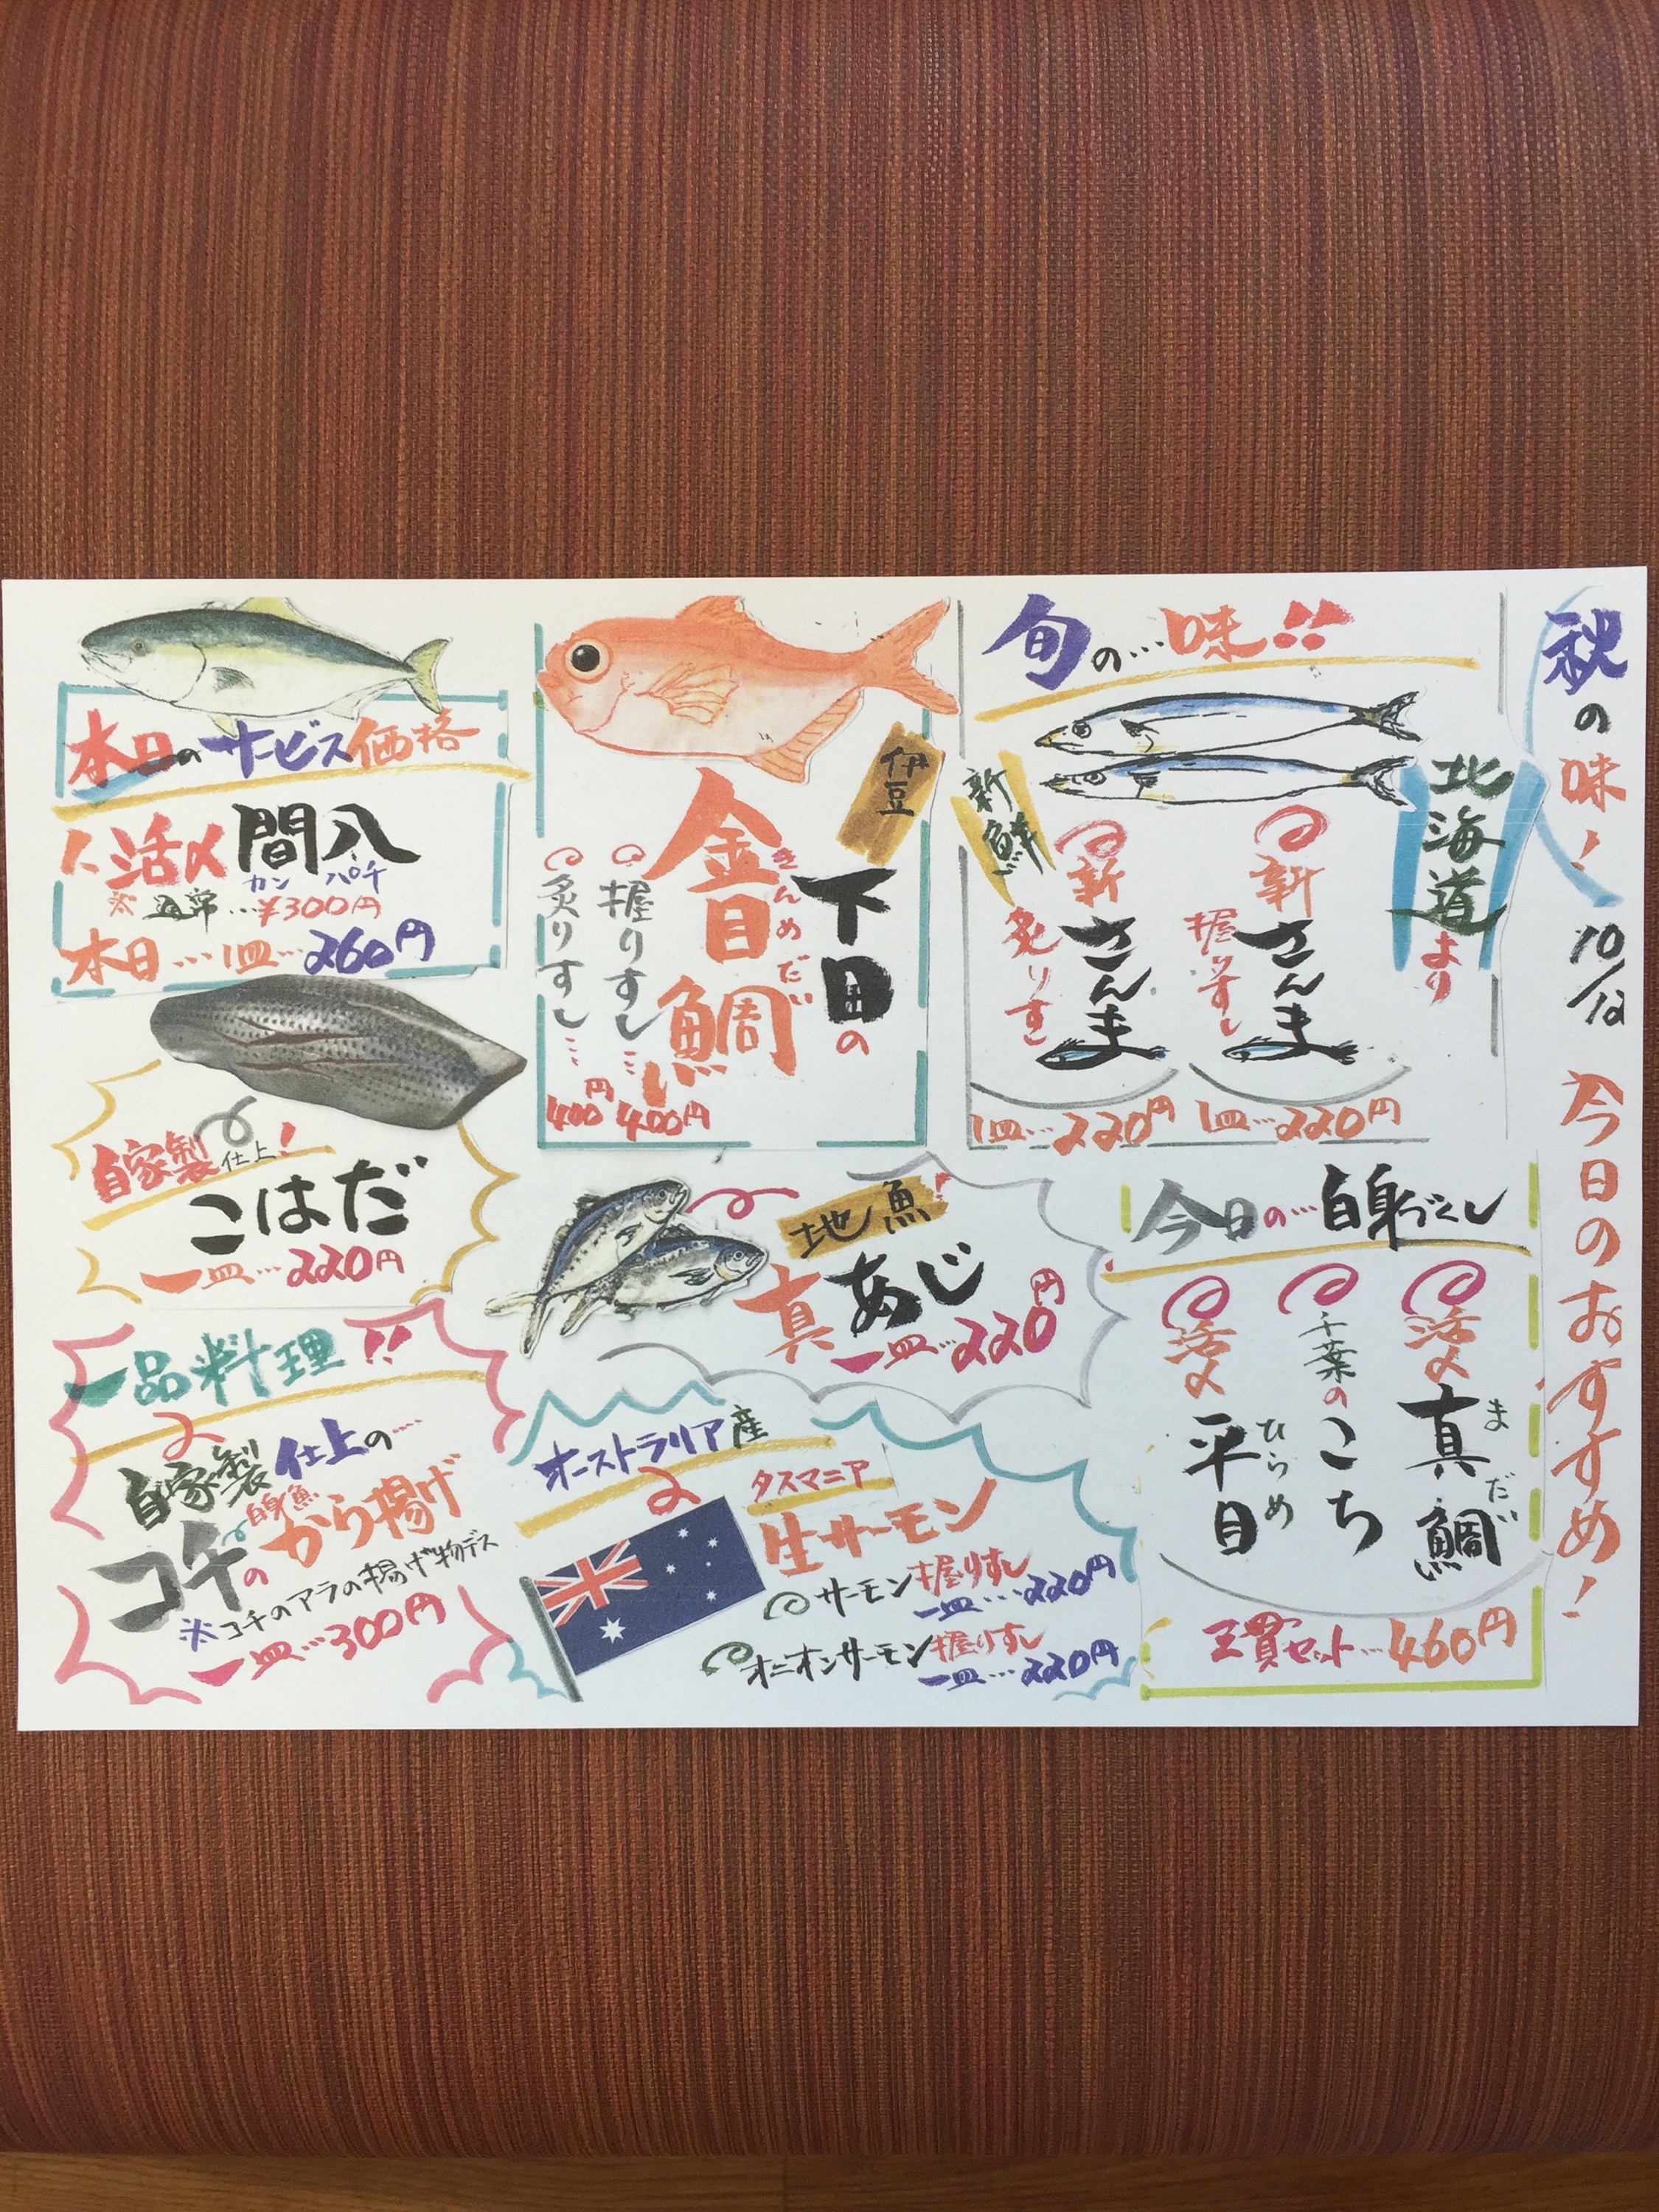 秋の味! 10/12 今日のおすすめ!
旬の…味!!
北海道より
新鮮
新さんま
握りすし
1皿…220円
新さんま
炙りすし
1皿…220円
伊豆
下田の
金目鯛
きんめだい
握りすし…
400円
炙りすし…
400円
本日のサービス価格
活〆間八
カンパチ
※通常…¥300円
本日…1皿…260円
自家製仕上!
こはだ
一皿…220円
地魚!
真あじ
一皿…220円
今日の…白身づくし
活〆真鯛
まだい
千葉のこち
活〆平目
ひらめ
三貫セット…460円
一品料理!!
自家製仕上の…
コチの白身魚から揚げ
※コチのアラの揚げ物デス
一皿…300円
オーストラリア産
タスマニア
生サーモン
サーモン握りすし
一皿…220円
オニオンサーモン握りすし
一皿…220円